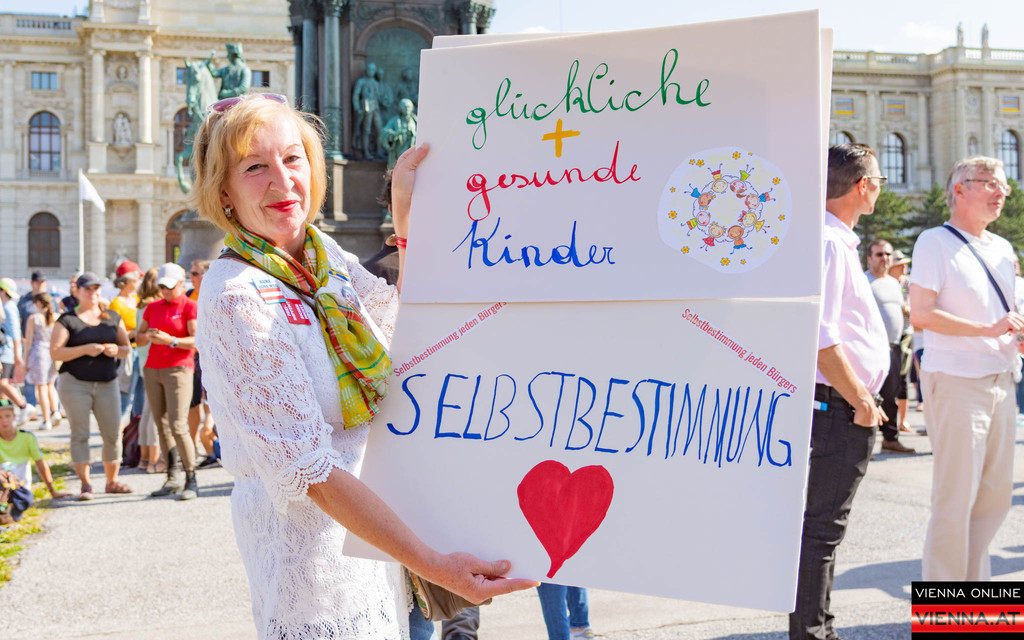 glückliche
+
gesunde
Kinder
Selbstbestimmung jeden Bürgers
Selbstbestimmung jeden Bürgers
SELBSTBESTIMMUNG
VIENNA ONLINE
VIENNA.AT